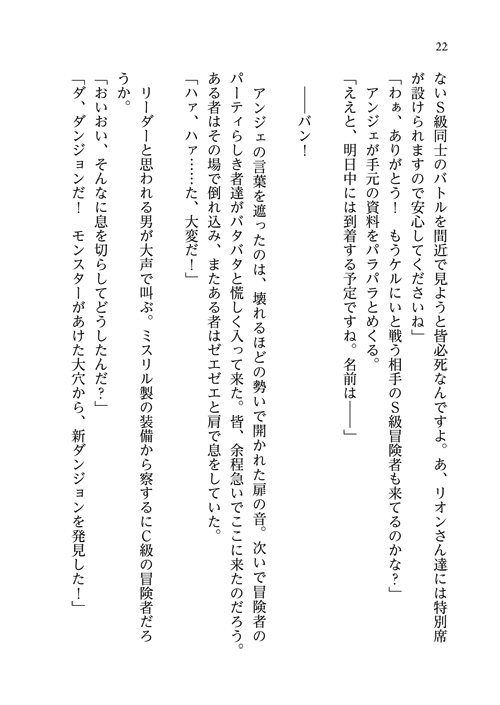 22
ないＳ級同士のバトルを間近で見ようと皆必死なんですよ。あ、リオンさん達には特別席
が設けられますので安心してくださいね」
「わぁ、ありがとう！　もうケルにいと戦う相手のＳ級冒険者も来てるのかな？」
　アンジェが手元の資料をパラパラとめくる。
「ええと、明日中には到着する予定ですね。名前は――」
　――バン！
　アンジェの言葉を遮ったのは、壊れるほどの勢いで開かれた扉の音。次いで冒険者の
パーティらしき者達がバタバタと慌しく入って来た。皆、余程急いでここに来たのだろう。
ある者はその場で倒れ込み、またある者はゼエゼエと肩で息をしていた。
「ハァ、ハァ……た、大変だ！」
　リーダーと思われる男が大声で叫ぶ。ミスリル製の装備から察するにＣ級の冒険者だろ
うか。
「おいおい、そんなに息を切らしてどうしたんだ？」
「ダ、ダンジョンだ！　モンスターがあけた大穴から、新ダンジョンを発見した！」